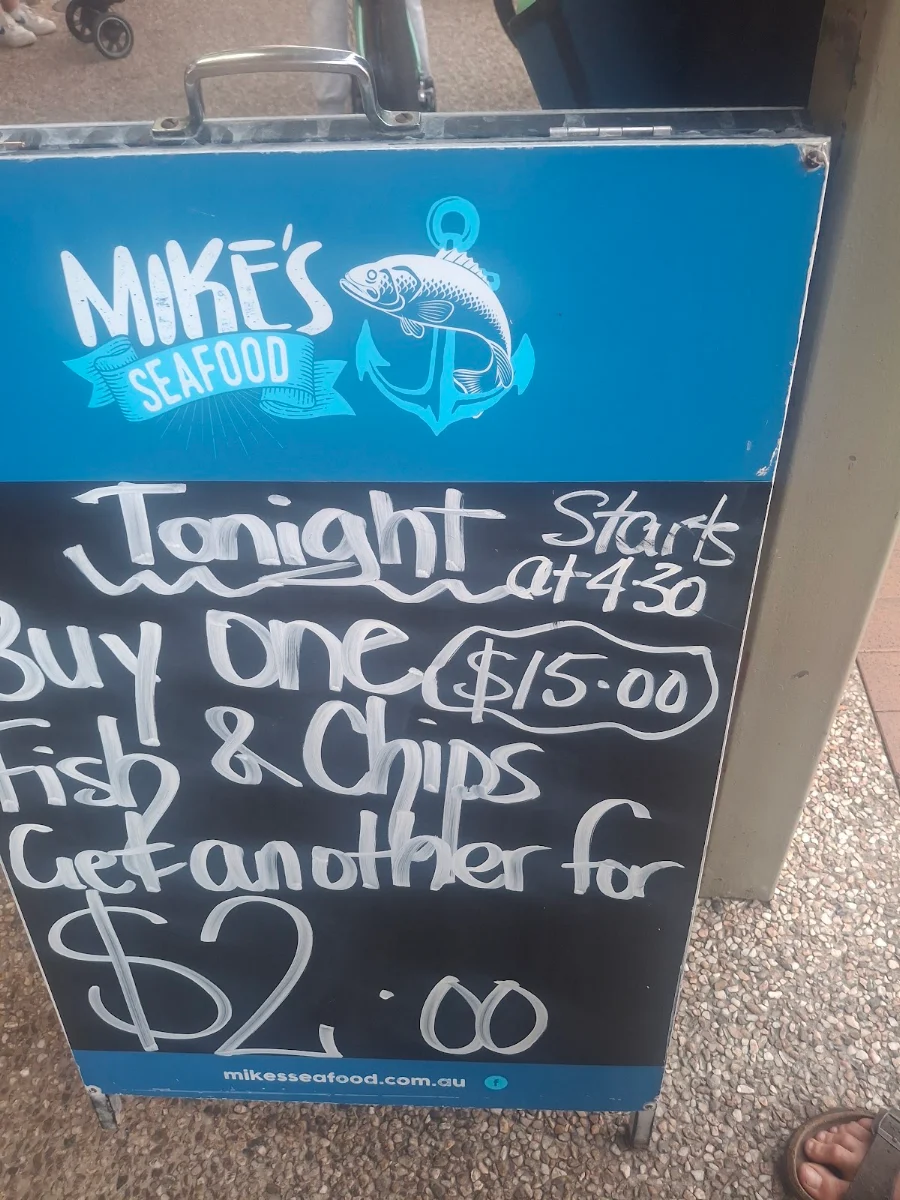 MIKE'S
SEAFOOD
Tonight
Starts
at 4.30
Buy one $15.00
Fish & Chips
Get another for
$2.00
mikesseafood.com.au f